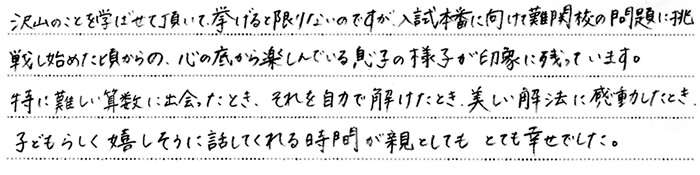 沢山のことを学ばせて頂いて、挙げると限りないのですが、入試本番に向けて難関校の問題に挑
戦し始めた頃からの、心の底から楽しんでいる息子の様子が印象に残っています。
特に難しい算数に出会ったとき、それを自力で解けたとき、美しい解法に感動したとき、
子どもらしく嬉しそうに話してくれる時間が親としても とても幸せでした。